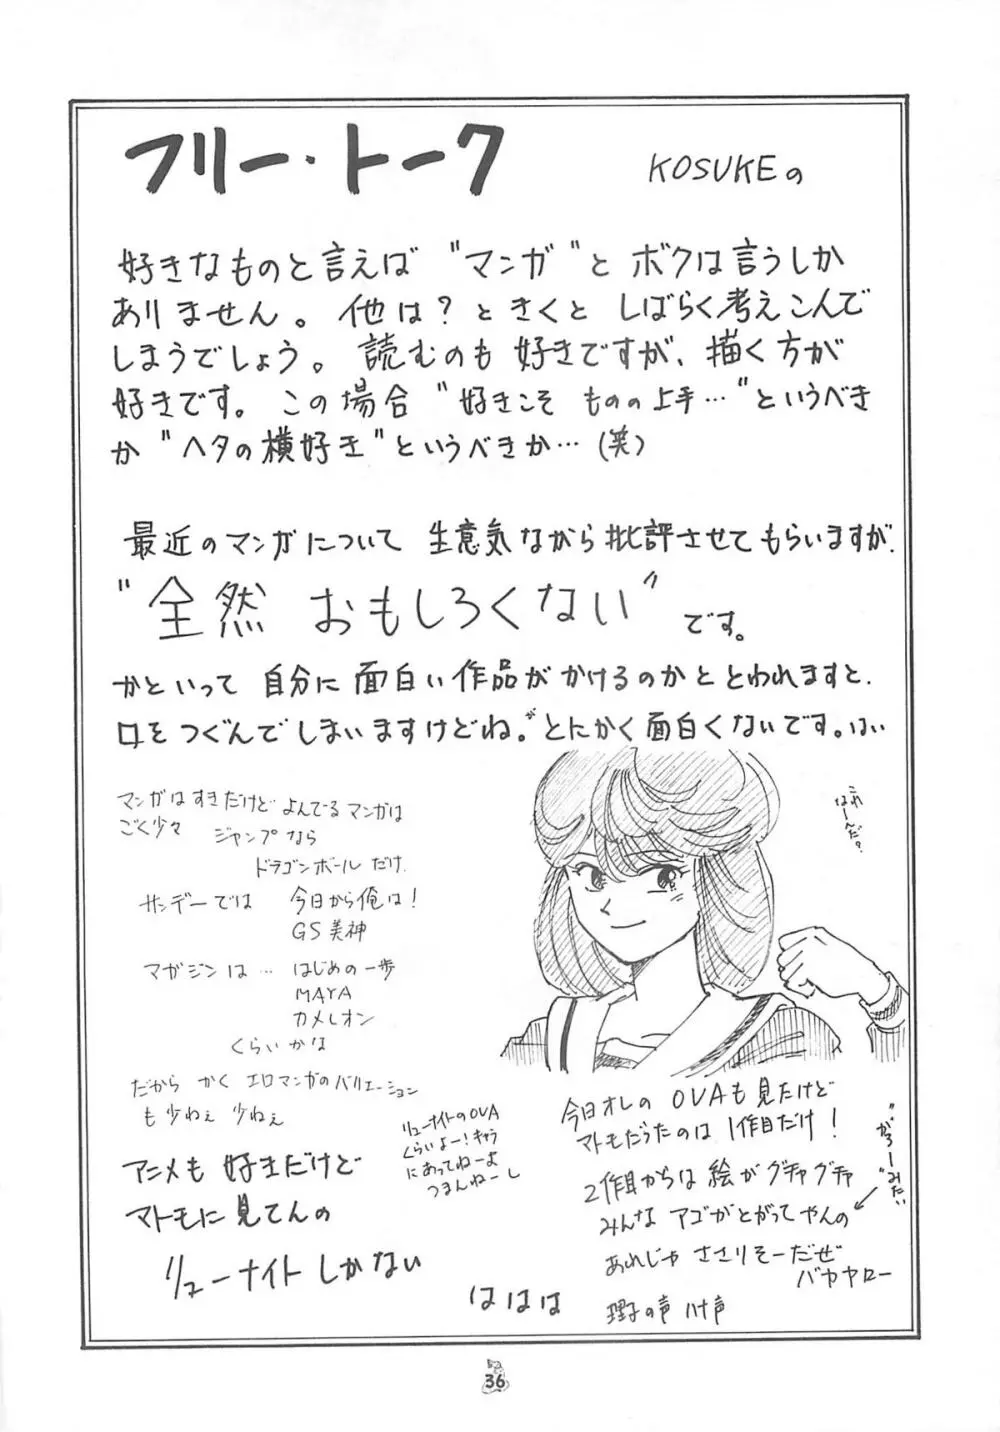 フリー・トーク
KOSUKEの
好きなものと言えば "マンガ" と ボクは言うしか
ありません。 他は? ときくと しばらく考えこんで
しまうでしょう。 読むのも 好きですが、描く方が
好きです。 この場合 "好きこそ ものの上手…"というべき
か "ヘタの横好き"というべきか… (笑)
最近のマンガについて 生意気ながら批評させてもらいますが、
"全然 おもしろくない"
です。
かといって 自分に面白い作品がかけるのかととわれますと、
口をつぐんでしまいますけどね。がとにかく面白くないです。はい
マンガはすきだけど よんでるマンガは
ごく少々 ジャンプなら
ドラゴンボールだけ。
サンデーでは 今日から俺は!
GS美神
マガジンは… はじめの一歩
MAYA
カメレオン
くらいかな
だから かく エロマンガのバリエーション
も少ねぇ 少ねぇ
アニメも 好きだけど
マトモに見てんの
リューナイトしかない
リューナイトのOVA
くらいよー!キャラ
にあってねーよ
つまんねーし
ははは
これ
はーんだ?
今日オレの OVAも見たけど
マトモだったのは 1作目だけ!
2作目からは 絵がグチャグチャ
みんな アゴがとがってやんの
"がろーみたい"
あれじゃ ささりそーだぜ
バカヤロー
理子の声 ハナ声
36